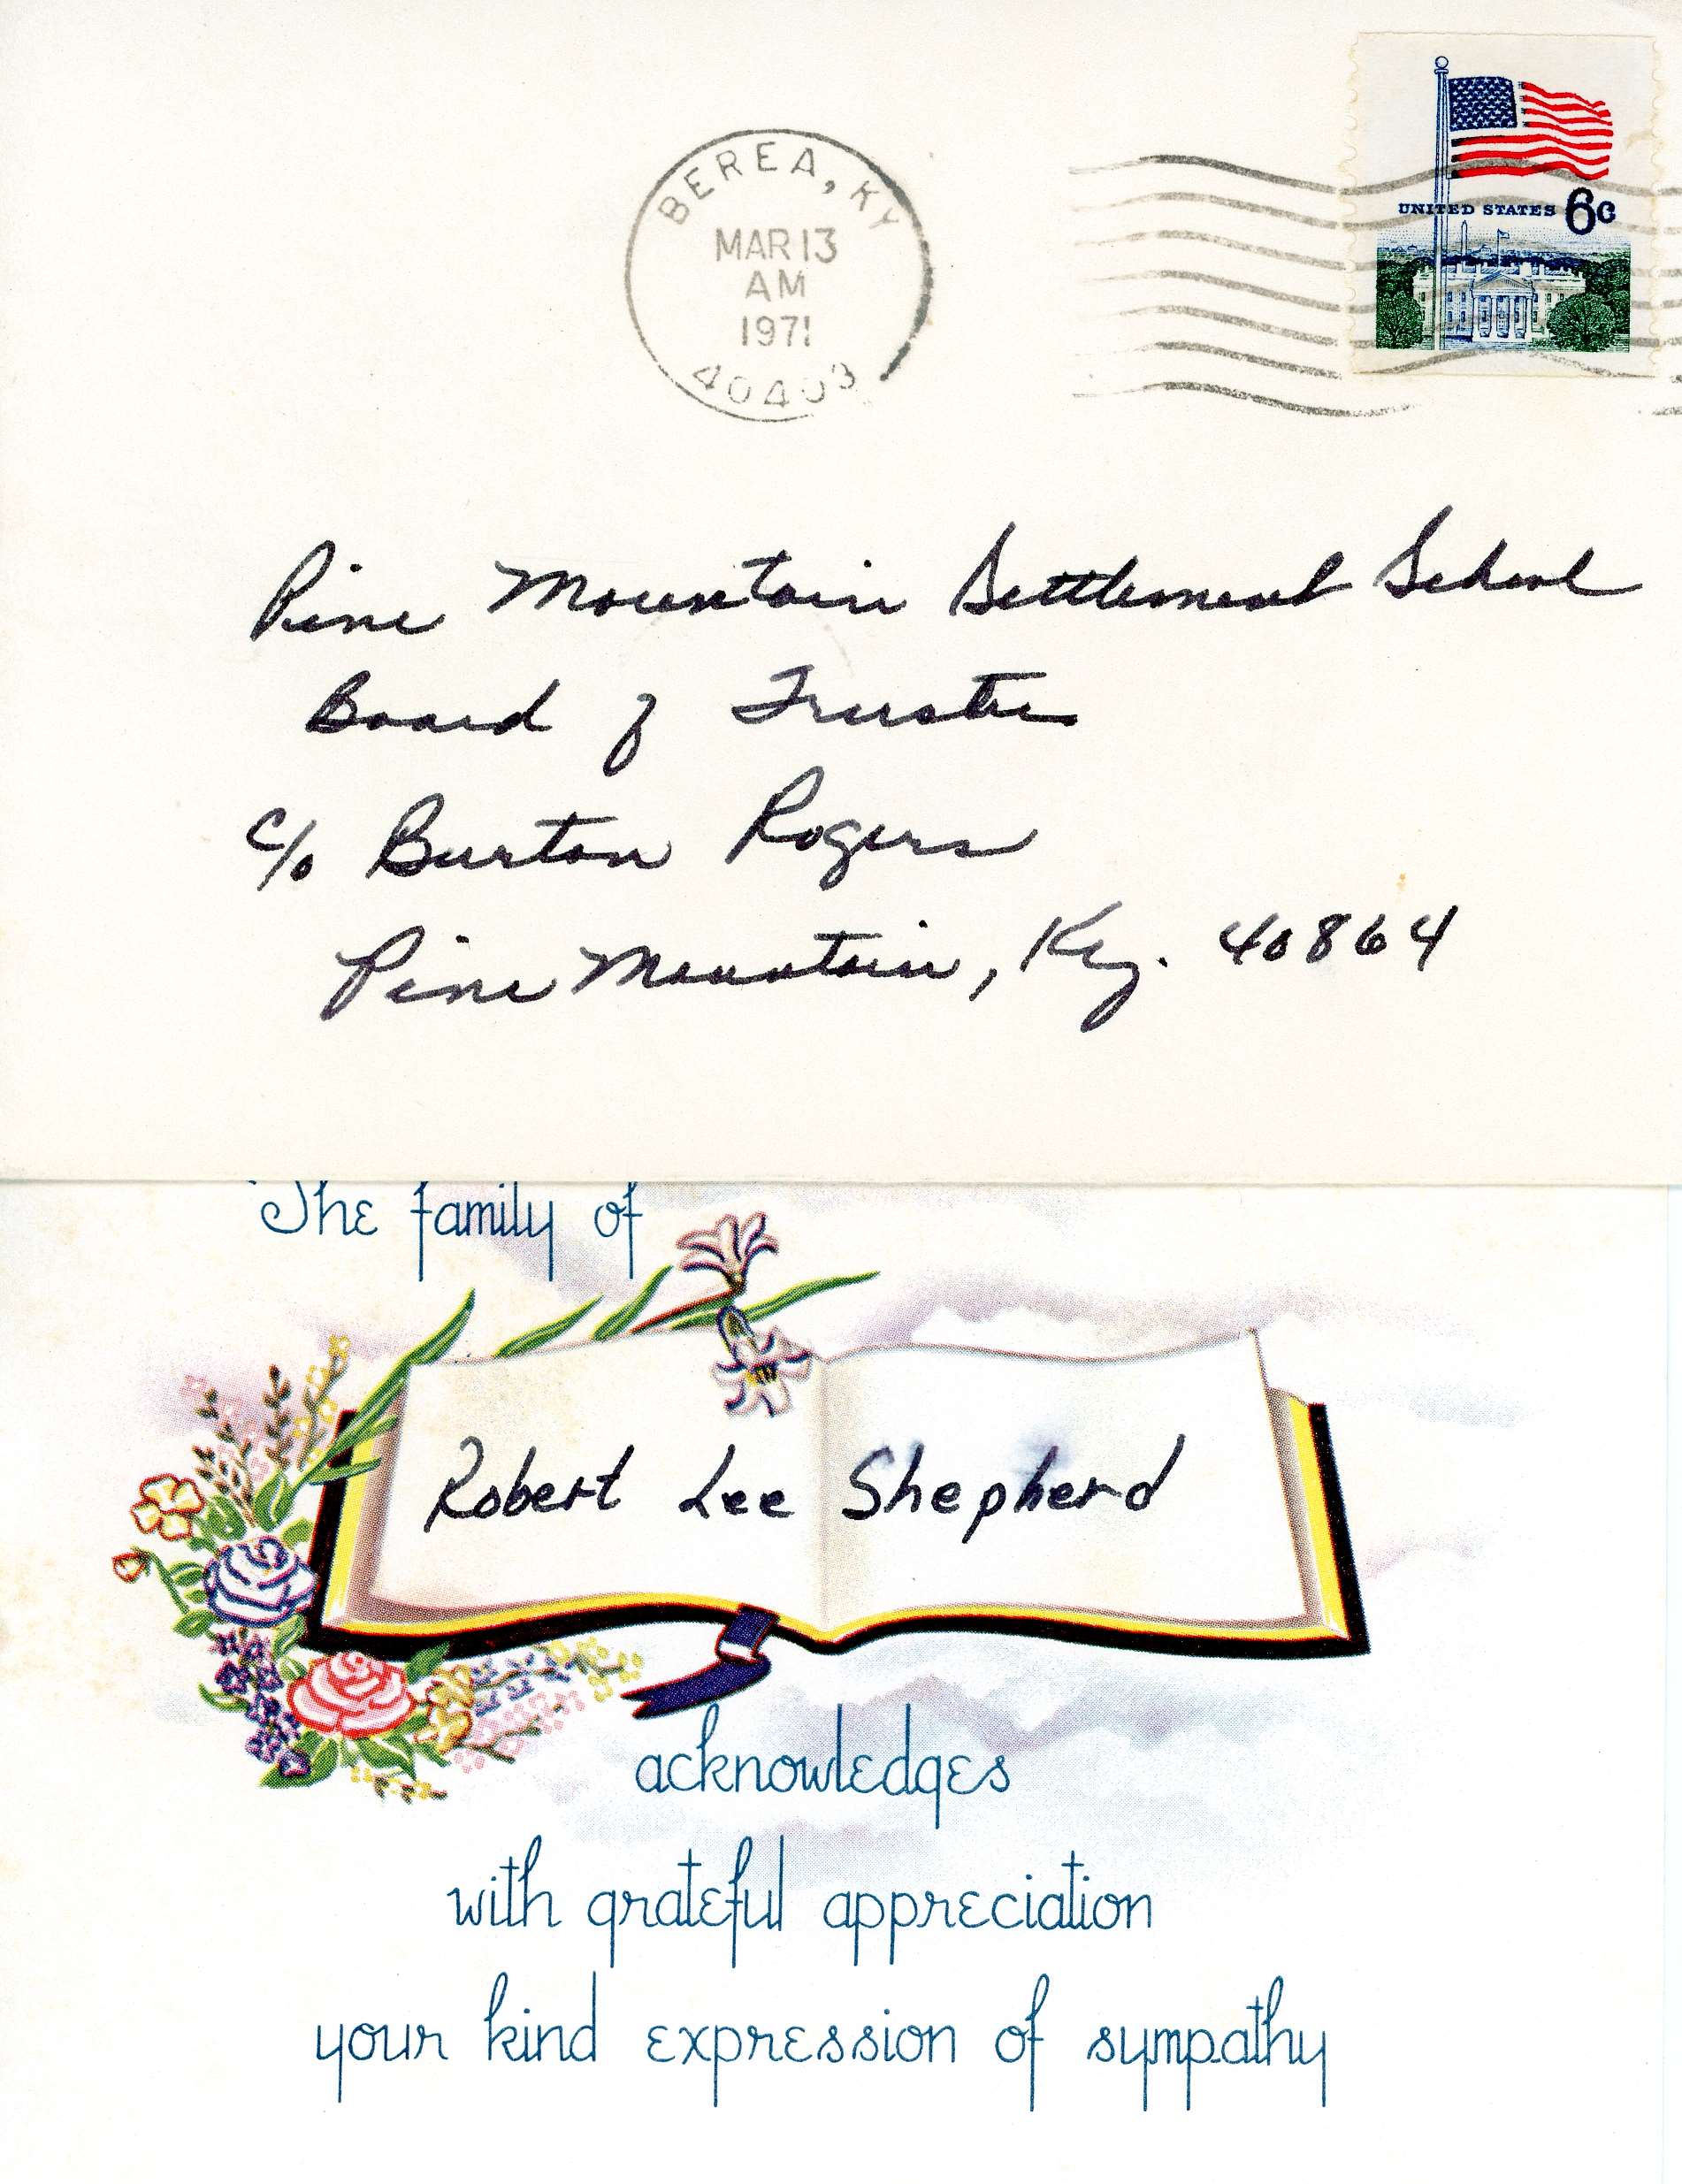 BEREA, KY
MAR 13
AM
1971
40403
UNITED STATES 6c
Pine Mountain Settlement School
Board of Trustees
c/o Burton Rogers
Pine Mountain, Ky. 40864
The family of
Robert Lee Shepherd
acknowledges
with grateful appreciation
your kind expression of sympathy